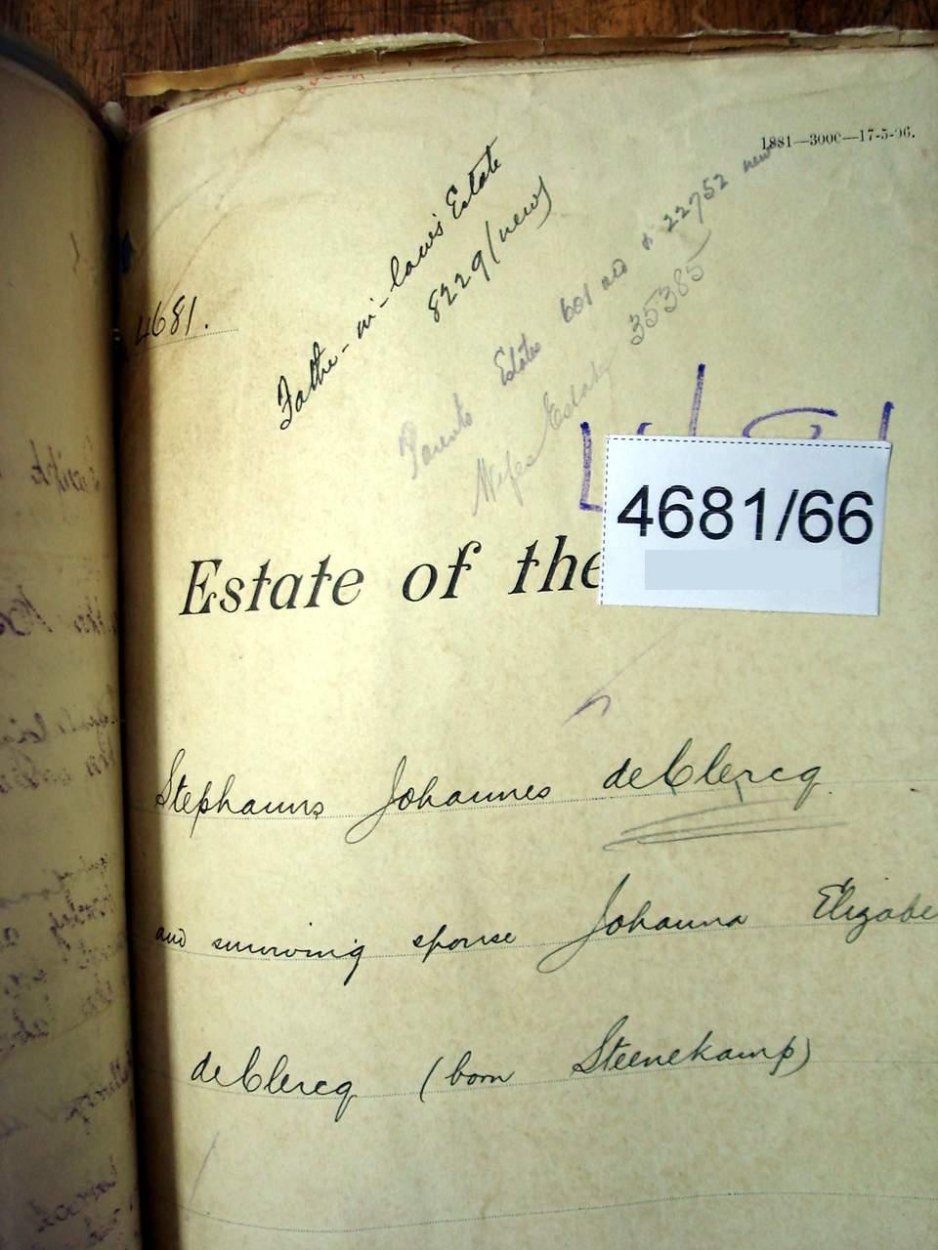 1881—3000—17-5-06.
Father-in-law's Estate
8229 (new)
4681.
Parents Estates 601 and 22752 new
Wifes Estate 35385
4681/66
Estate of the
Stephanus Johannes deClercq.
and surviving spouse Johanna Elizabe
deClercq (born Steenekamp)